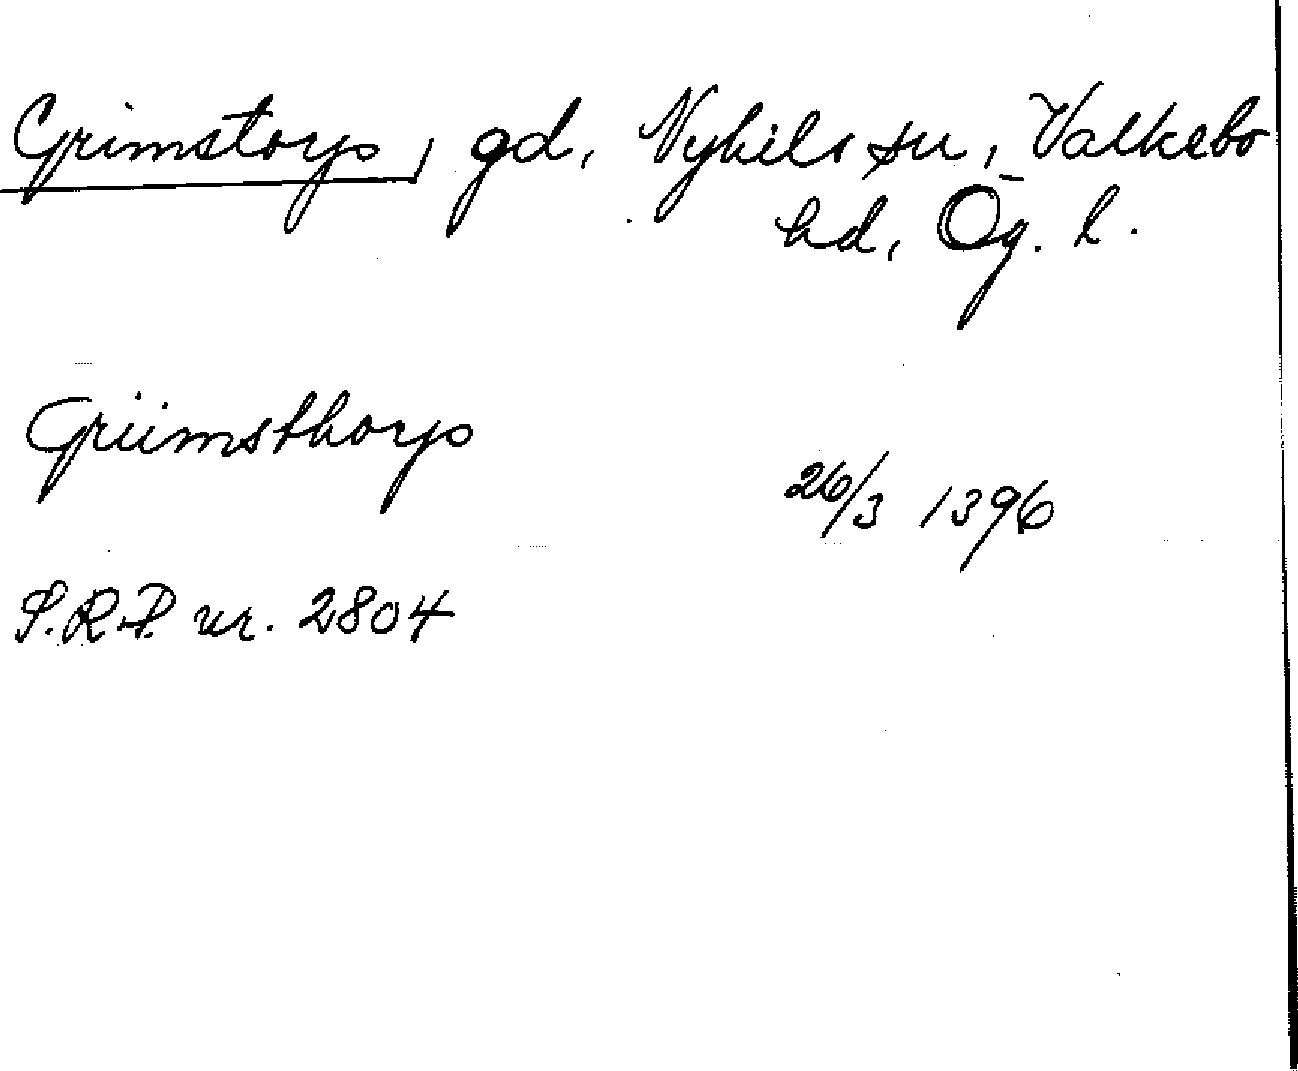 Grimstorp, gd, Nykils sn, Valkebo
hd, Ög. l.
Griimsthorp
26/3 1396
S.R.P. nr. 2804